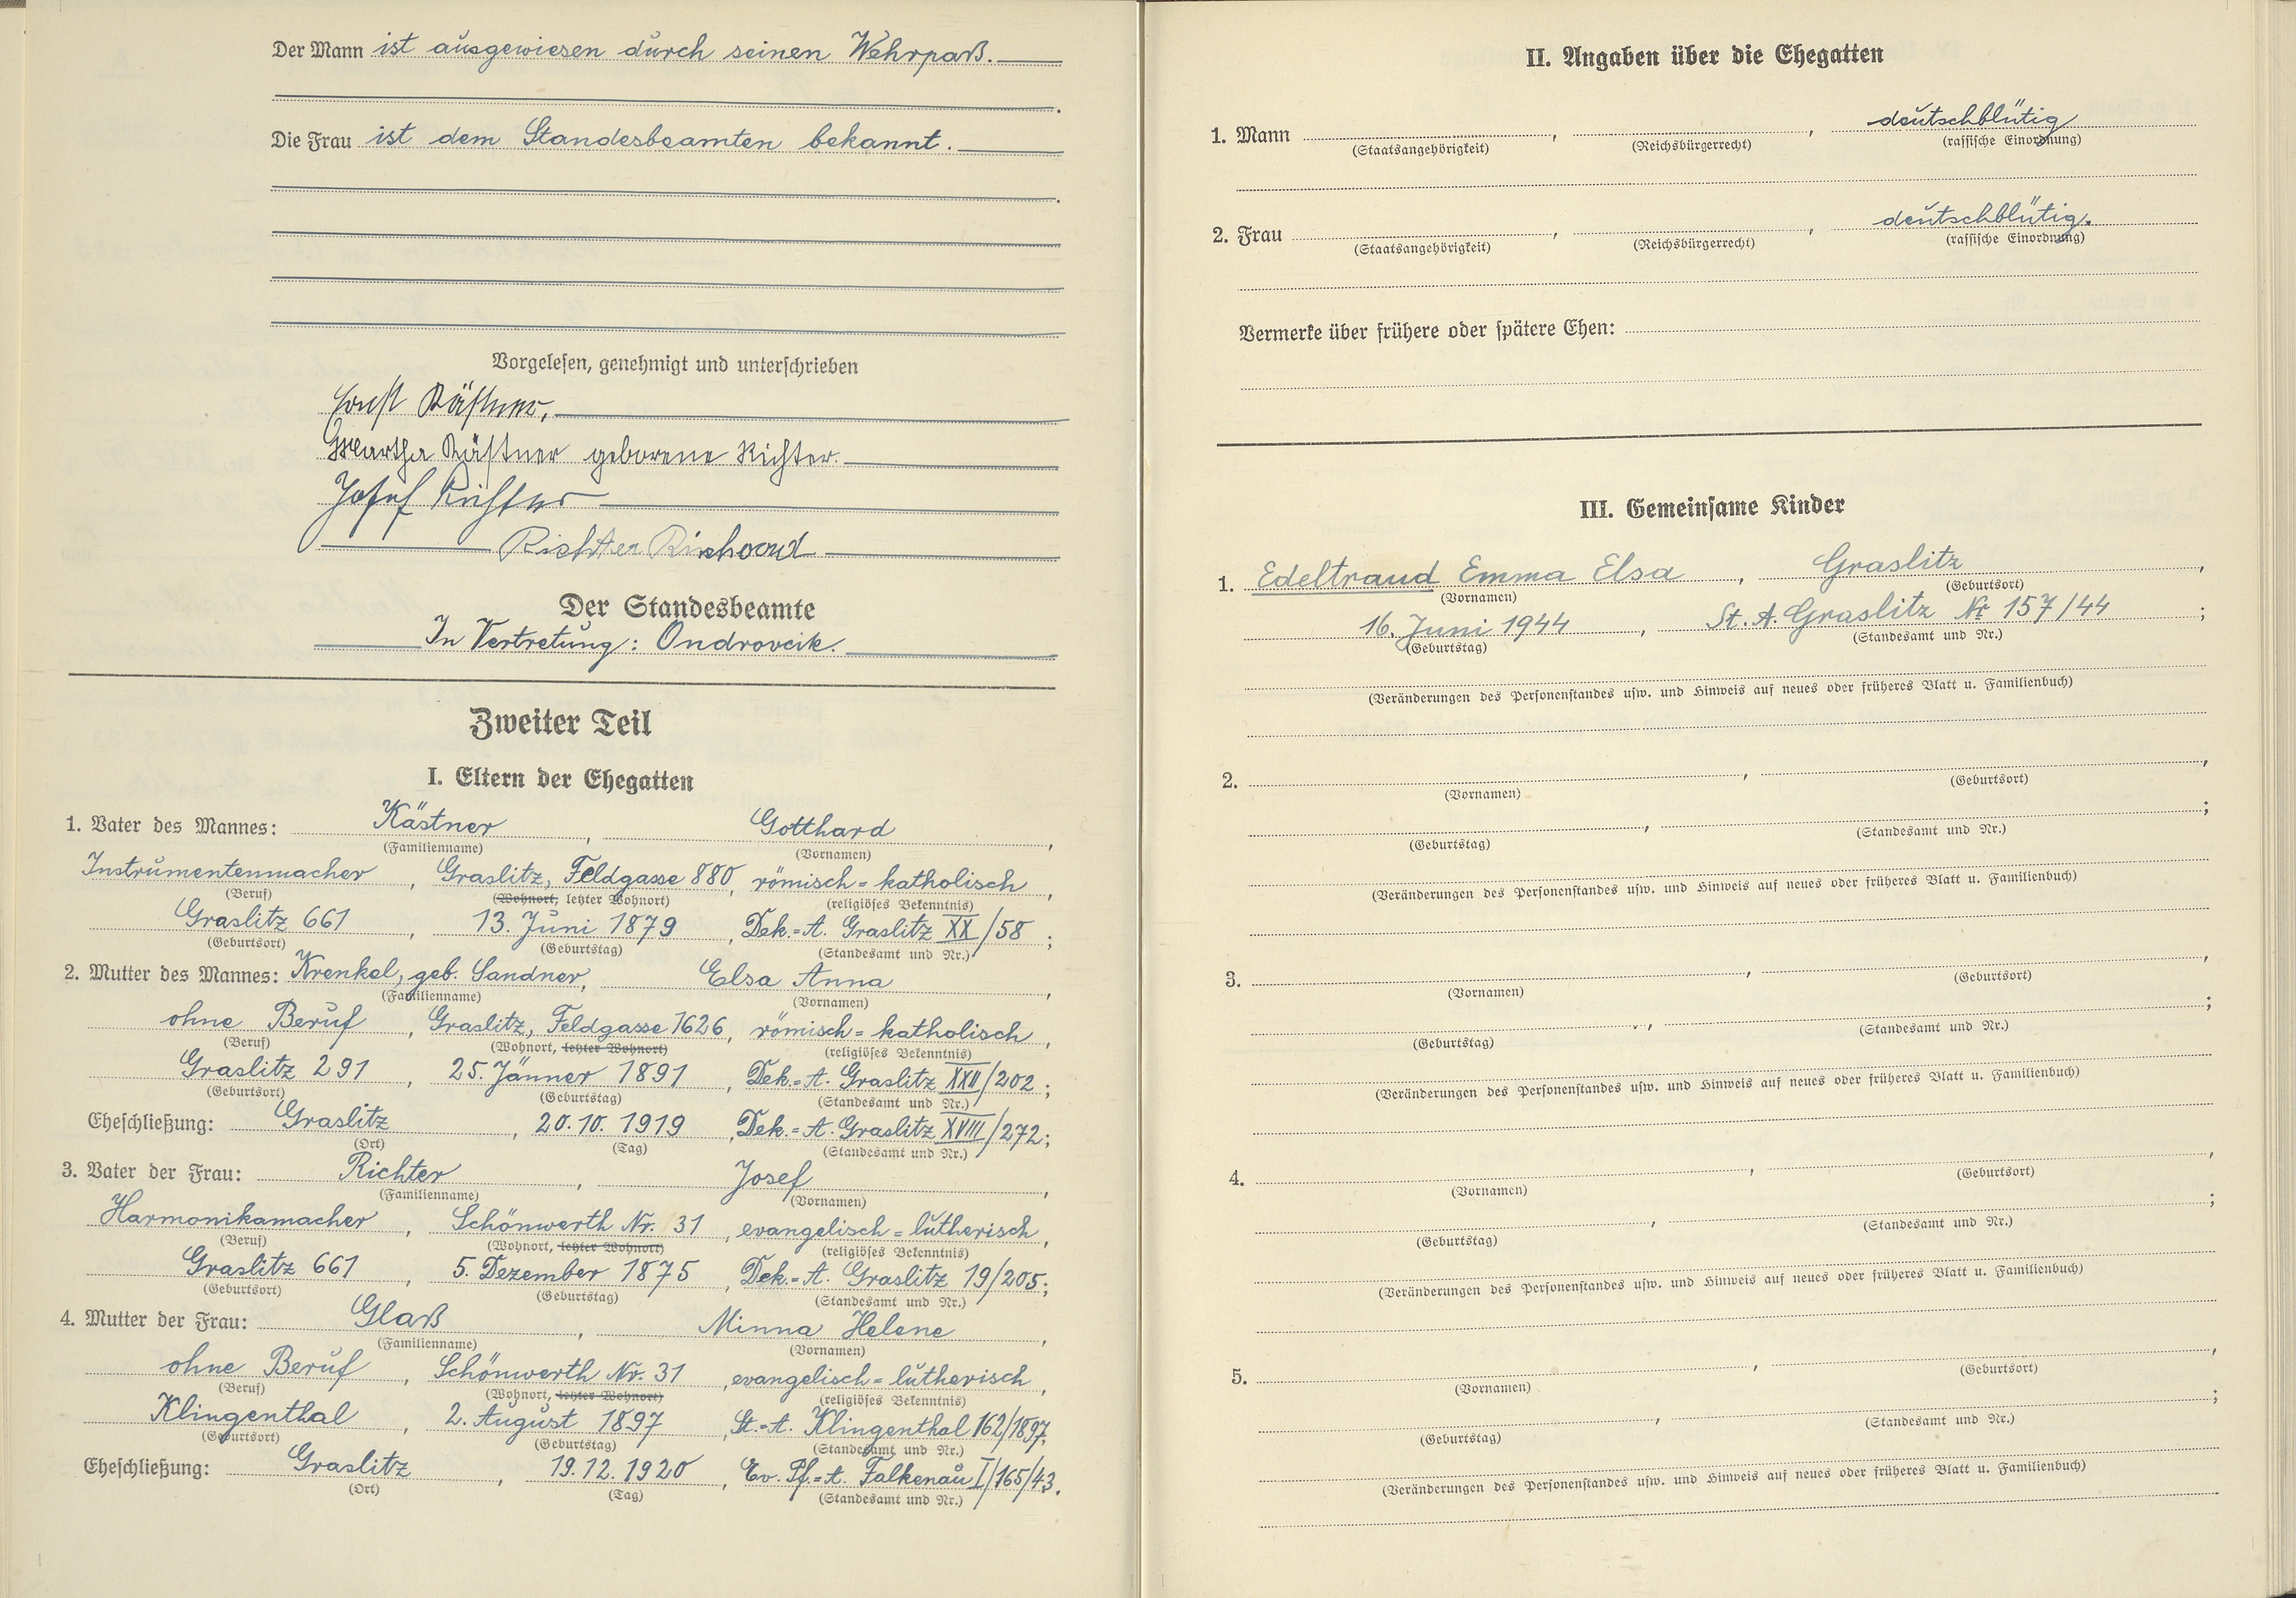 Der Mann ist ausgewiesen durch seinen Wehrpaß.
Die Frau ist dem Standesbeamten bekannt.
Vorgelesen, genehmigt und unterschrieben
Ernst Kästner,
Martha Kästner geborene Richter.
Josef Richter
Richter Richard
Der Standesbeamte
In Vertretung: Ondrovcik.
Zweiter Teil
I. Eltern der Ehegatten
1. Vater des Mannes: Kästner, Gotthard,
(Familienname) (Vornamen)
Instrumentenmacher, Graslitz, Feldgasse 880, römisch=katholisch,
(Beruf) (Wohnort, letzter Wohnort) (religiöses Bekenntnis)
Graslitz 661, 13. Juni 1879, Dek.=A. Graslitz XX/58;
(Geburtsort) (Geburtstag) (Standesamt und Nr.)
2. Mutter des Mannes: Krenkel, geb. Sandner, Elsa Anna,
(Familienname) (Vornamen)
ohne Beruf, Graslitz, Feldgasse 1626, römisch=katholisch,
(Beruf) (Wohnort, letzter Wohnort) (religiöses Bekenntnis)
Graslitz 291, 25. Jänner 1891, Dek.=A. Graslitz XXII/202;
(Geburtsort) (Geburtstag) (Standesamt und Nr.)
Eheschließung: Graslitz, 20.10.1919, Dek.=A. Graslitz XVIII/272;
(Ort) (Tag) (Standesamt und Nr.)
3. Vater der Frau: Richter, Josef,
(Familienname) (Vornamen)
Harmonikamacher, Schönwerth Nr. 31, evangelisch=lutherisch,
(Beruf) (Wohnort, letzter Wohnort) (religiöses Bekenntnis)
Graslitz 661, 5. Dezember 1875, Dek.=A. Graslitz 19/205;
(Geburtsort) (Geburtstag) (Standesamt und Nr.)
4. Mutter der Frau: Glaß, Minna Helene,
(Familienname) (Vornamen)
ohne Beruf, Schönwerth Nr. 31, evangelisch=lutherisch,
(Beruf) (Wohnort, letzter Wohnort) (religiöses Bekenntnis)
Klingenthal, 2. August 1897, St.=A. Klingenthal 162/1897.
(Geburtsort) (Geburtstag) (Standesamt und Nr.)
Eheschließung: Graslitz, 19.12.1920, Ev. Pf.=A. Falkenau I/165/43.
(Ort) (Tag) (Standesamt und Nr.)
II. Angaben über die Ehegatten
1. Mann , , deutschblütig
(Staatsangehörigkeit) (Reichsbürgerrecht) (rassische Einordnung)
2. Frau , , deutschblütig.
(Staatsangehörigkeit) (Reichsbürgerrecht) (rassische Einordnung)
Vermerke über frühere oder spätere Ehen:
III. Gemeinsame Kinder
1. Edeltraud Emma Elsa, Graslitz,
(Vornamen) (Geburtsort)
16. Juni 1944, St. A. Graslitz Nr 157/44;
(Geburtstag) (Standesamt und Nr.)
(Veränderungen des Personenstandes usw. und Hinweis auf neues oder früheres Blatt u. Familienbuch)
2. , ,
(Vornamen) (Geburtsort)
, ;
(Geburtstag) (Standesamt und Nr.)
(Veränderungen des Personenstandes usw. und Hinweis auf neues oder früheres Blatt u. Familienbuch)
3. , ,
(Vornamen) (Geburtsort)
, ;
(Geburtstag) (Standesamt und Nr.)
(Veränderungen des Personenstandes usw. und Hinweis auf neues oder früheres Blatt u. Familienbuch)
4. , ,
(Vornamen) (Geburtsort)
, ;
(Geburtstag) (Standesamt und Nr.)
(Veränderungen des Personenstandes usw. und Hinweis auf neues oder früheres Blatt u. Familienbuch)
5. , ,
(Vornamen) (Geburtsort)
, ;
(Geburtstag) (Standesamt und Nr.)
(Veränderungen des Personenstandes usw. und Hinweis auf neues oder früheres Blatt u. Familienbuch)